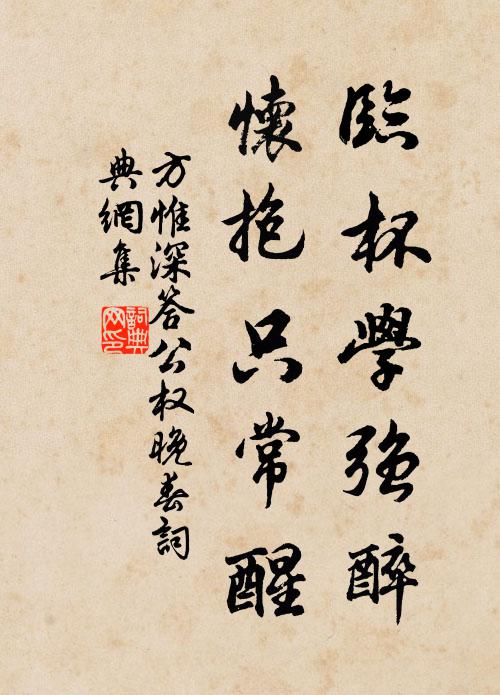 臨杯學強醉
懷抱只常醒
方惟深答公权晚春詞
典網集
詞典
网印